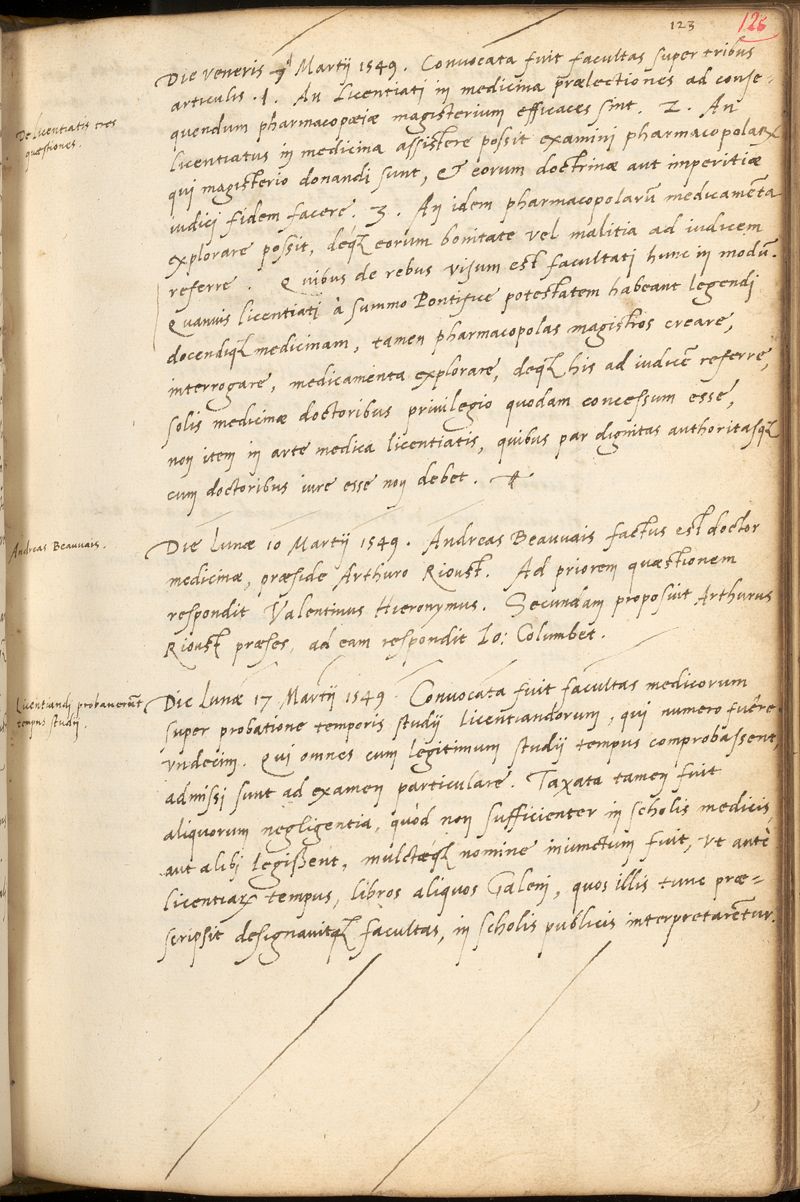 123
123
Die Veneris 7 Martij 1549. Convocata fuit facultas super tribus
articulis. 1. An Licentiati in medicina prælectiones ad conse=
quendum pharmacopœiæ magisterium efficaces sint. 2. An
Licentiatus in medicina assistere possit examini pharmacopolaꝝ
qui magisterio donandi sunt, & eorum doctrinæ aut imperitiæ
iudici fidem facere. 3. An idem pharmacopolarū medicamēta
explorare possit, deq́ꝫ eorum bonitate vel malitia ad iudicem
referre. Quibus de rebus visum est facultati hunc in modū.
Quamvis licentiati à summo Pontifice potestatem habeant legendi
docendiqꝫ medicinam, tamen pharmacopolas magistros creare,
interrogare, medicamenta explorare, deqꝫ his ad iudicē referre,
solis medicinæ doctoribus privilegio quodam concessum esse,
non item in arte medica licentiatis, quibus par dignitas authoritasqꝫ
cum doctoribus iure esse non debet.
De licentiatis tres
quæstiones.
Andreas Beauvais.
Die Lunæ 10 Martij 1549. Andreas Beauvais factus est doctor
medicinæ, præside Arthuro Rioust. Ad priorem quæstionem
respondit Valentinus Hieronymus. Secundam proposuit Arthurus
Rioust præses, ad eam respondit Io: Columbet.
Licentiandi probaverūt
tempus studij.
Die Lunæ 17 Martij 1549. Convocata fuit facultas medicorum
super probatione temporis studij licentiandorum, qui numero fuēre
vndecim. Qui omnes cum legitimum studij tempus comprobassent,
admissi sunt ad examen particulare. Taxata tamen fuit
aliquorum negligentia, quòd non sufficienter in scholis medicis,
aut alibi legissent, mulctæqꝫ nomine iniunctum fuit, vt antè
licentiaꝝ tempus, libros aliquos Galeni, quos illis tunc præ=
scripsit designavitqꝫ facultas, in scholis publicis interpretarētur.